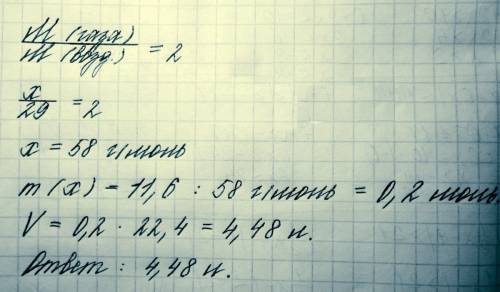 М (газа)
М (возд.) = 2
х
29 = 2
х = 58 г/моль
m (х) = 11,6 : 58 г/моль = 0,2 моль
V = 0,2 · 22,4 = 4,48 л.
Ответ : 4,48 л.